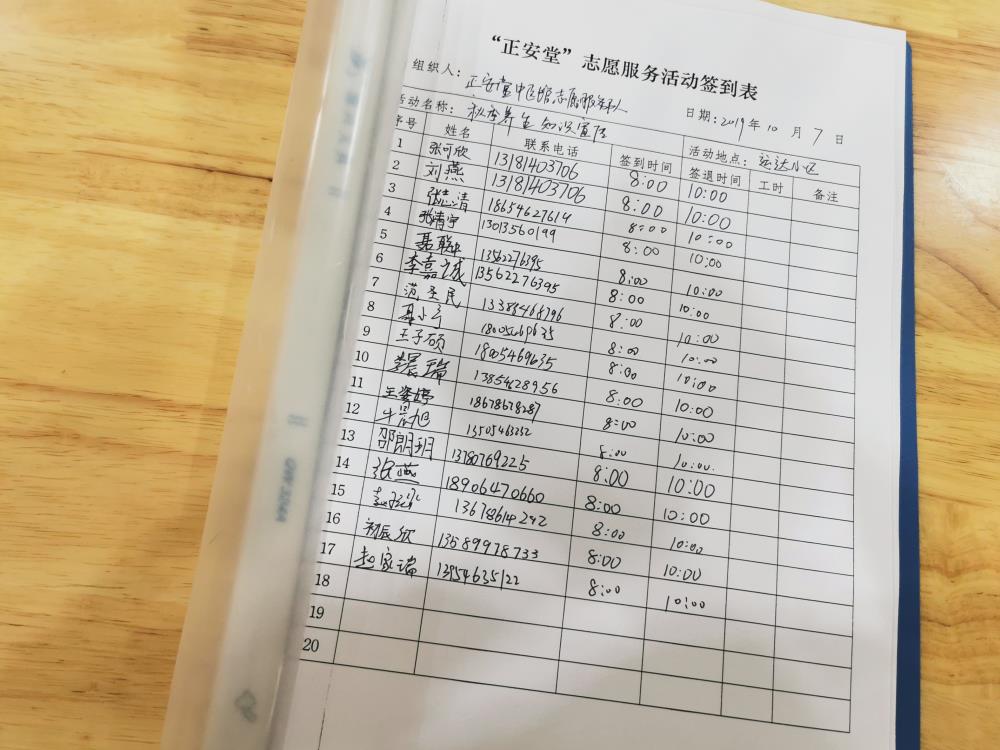 “正安堂”志愿服务活动签到表
组织人：正安堂中医馆志愿服务队 日期：2019年10月7日
活动名称：秋季养生知识宣传 活动地点：运达小区
序号 姓名 联系电话 签到时间 签退时间 工时 备注
1 张可欣 13181403706 8:00 10:00
2 刘燕 13181403706 8:00 10:00
3 张志清 18654627614 8:00 10:00
4 张清宇 13013560199 8:00 10:00
5 聂联中 13562276395 8:00 10:00
6 李嘉诚 13562276395 8:00 10:00
7 范圣民 8:00 10:00
8 聂小宁 18005469635 8:00 10:00
9 王子硕 18005469635 8:00 10:00
10 13854628956 8:00 10:00
11 王姿婷 18678678287 8:00 10:00
12 牛昱旭 13505463232 8:00 10:00
13 邵朗玥 13780769225 8:00 10:00
14 张燕 18906470660 8:00 10:00
15 13678614242 8:00 10:00
16 初辰欣 13589978733 8:00 10:00
17 赵家瑞 13954635122 8:00 10:00
18
19
20